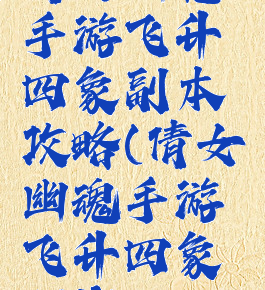 手游飞升
四象副本
攻略(倩女
幽魂手游
飞升四象